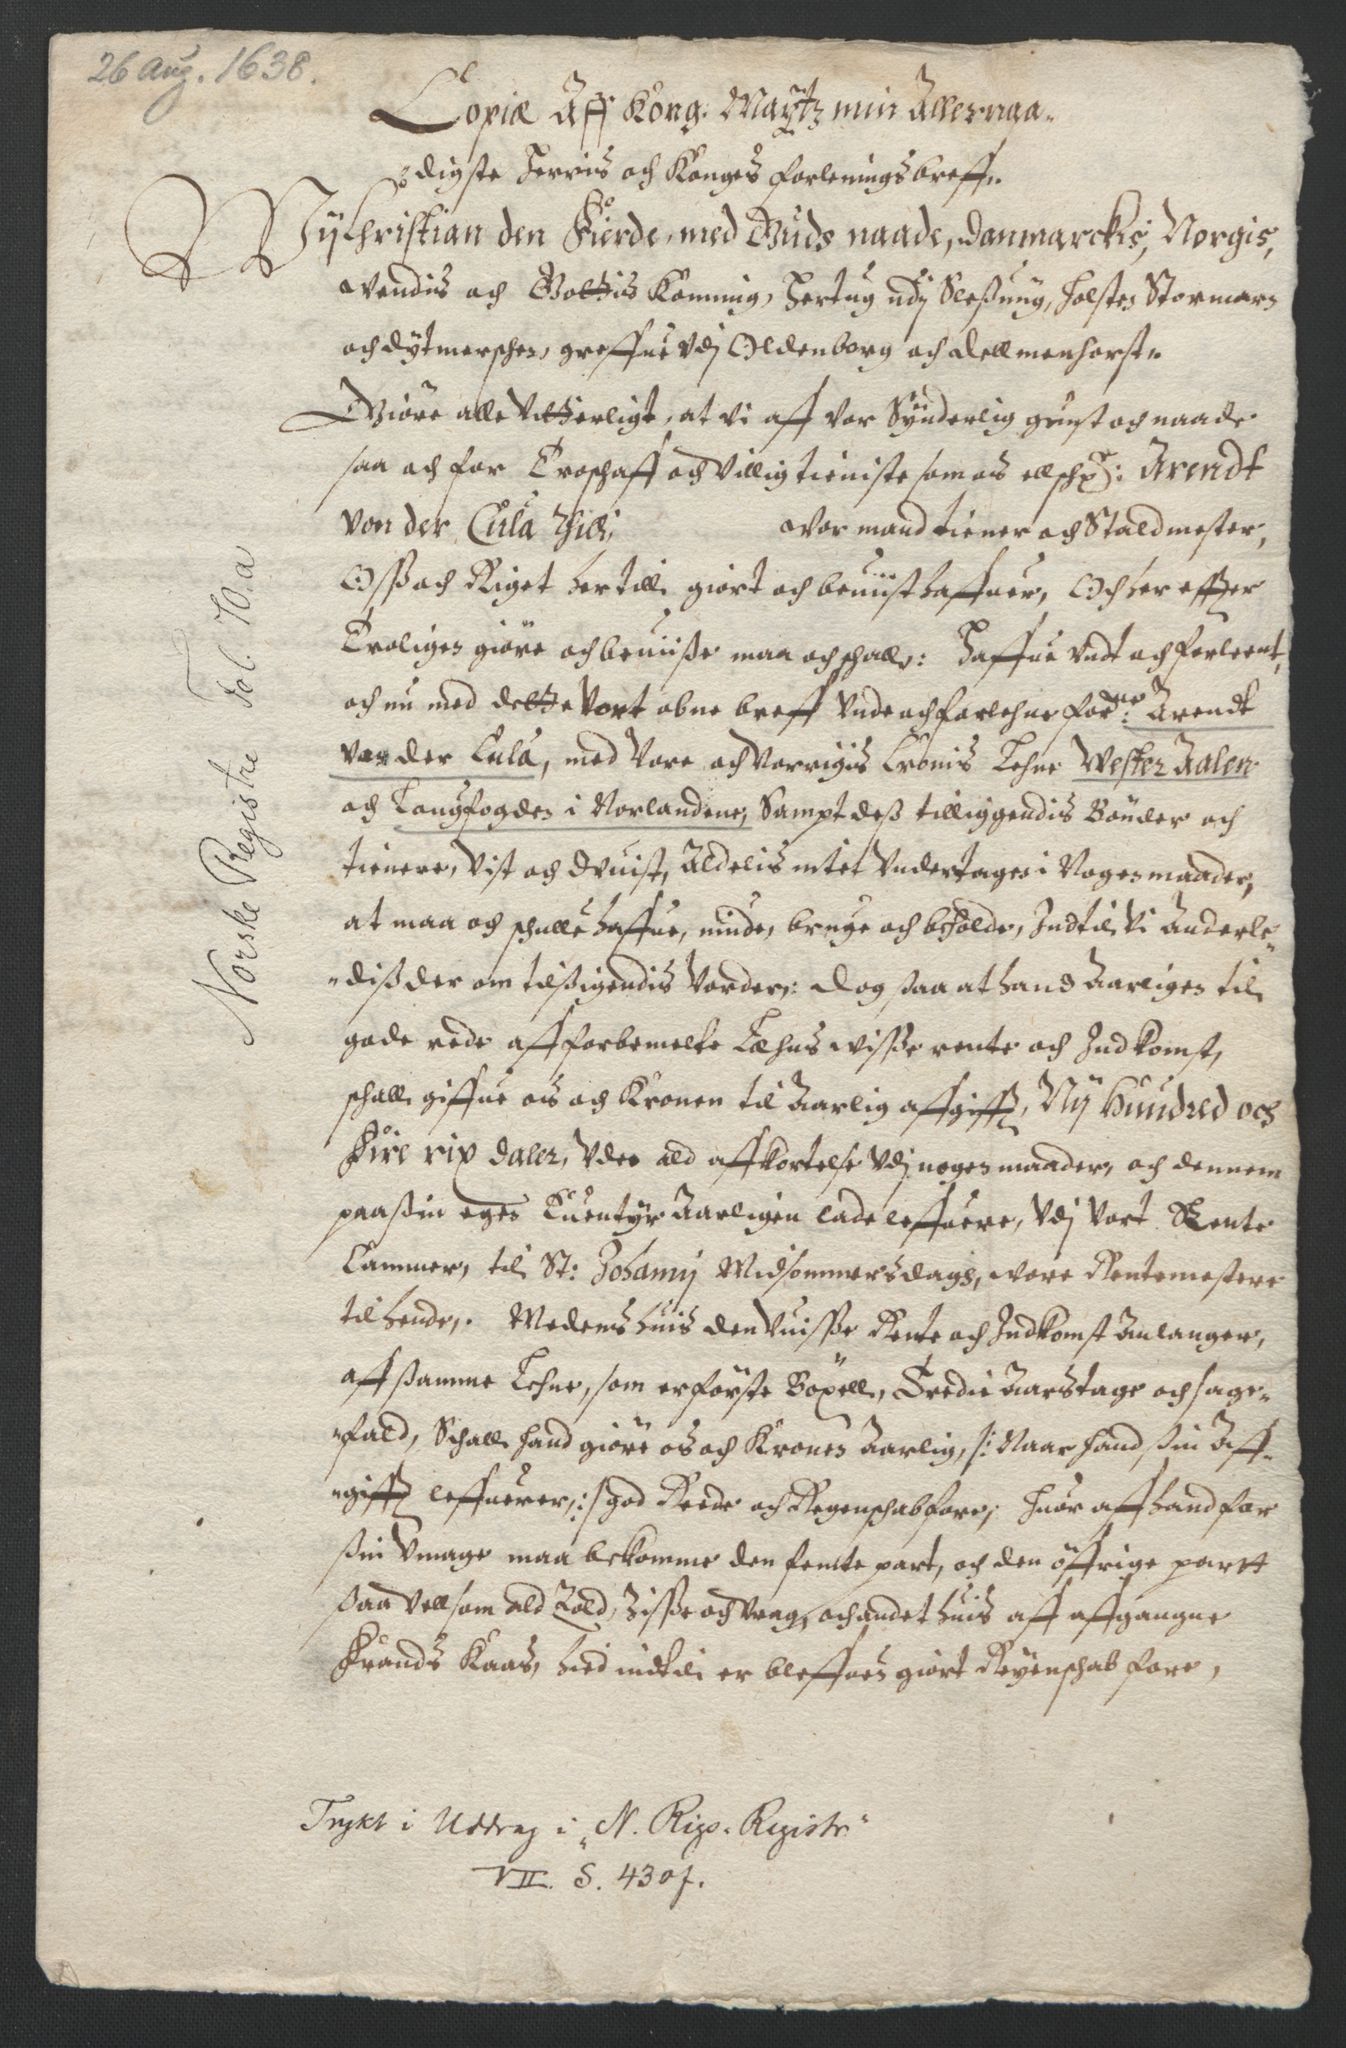 26 Aug. 1638.
Copiæ Aff Kong. Maÿtz min Allernaa-
digste Herris och Konges forleningsbreff.
Wij Christian den Fierde, med Guds naade, Danmarckis, Norgis,
Wendis och Gottis Konning, Hertug udj Sleßuig, Holsten Stormarn
och dÿtmerschen, greffue Vdj Oldenborg och Dellmenhorst.
Giöre alle Vitterligt, at Vi aff Vor Synderlig gunst och naade
saa och for Troschaff och Villig tieniste som os ellschr: Arendt
von der Cula Hidj wor mand tiener och Staldmester,
Oss och Riget her till giort och beuiist haffuer, Och her effter
Troligen giöre och beuiiße maa och schall: Haffue Vndt och forleent,
och nu med dette Vort obne breff Vnde och forlehne fordne: Arendt
von der Cula, med Vore och Norrigis Cronis Lehne Wester Aalen
och Langfogden i Norlandene, Sampt deß tilliggendis Bönder och
tienere, Vist och Vuist, Aldelis intet Vndertagen i Nogen maader,
at maa och schulle haffue, niude, bruge och beholde, Indtil Vi Anderle-
-dis der om tilsigendis Vorder: Dog saa at hand Aarligen til
gode rede aff forbemelte Læhns wisse rente och Indkomst,
schall giffue os och Kronen til Aarlig affgifft, Nij Hundred och
Fire rix daler, Vden ald affkortelse Vdj nogen maader, och dennem
paa sin egen Euentyr Aarligen lade leffuere, Vdj Vort Rente
Cammer, til St: Johannj Midsommersdags, wore Rentemestere
til hende. Medens huis den Vuisse Rente och Indkomst Anlanger,
aff samme Lehne, som er förste Böxell, Tredie Aarstage och sage-
-fald, Schall hand giöre os och Kronen Aarlig, /: Naar hand sin Aff-
-gifft leffuerer, :/ god Reede och Regenschab fore, Huor aff hand for
sin Vmage maa bekomme den femte part, och den öffrige partt
saa Vell som ald Told, Sisse och Vrag, och andet huis aff affgangne
Frands Kaas, hied indtil er bleffuen giort Regenschab fore,
Norske Registre Fol. 70. a
Trykt i Uddrag i "N. Rigs-Registr"
VII. S. 430 f.